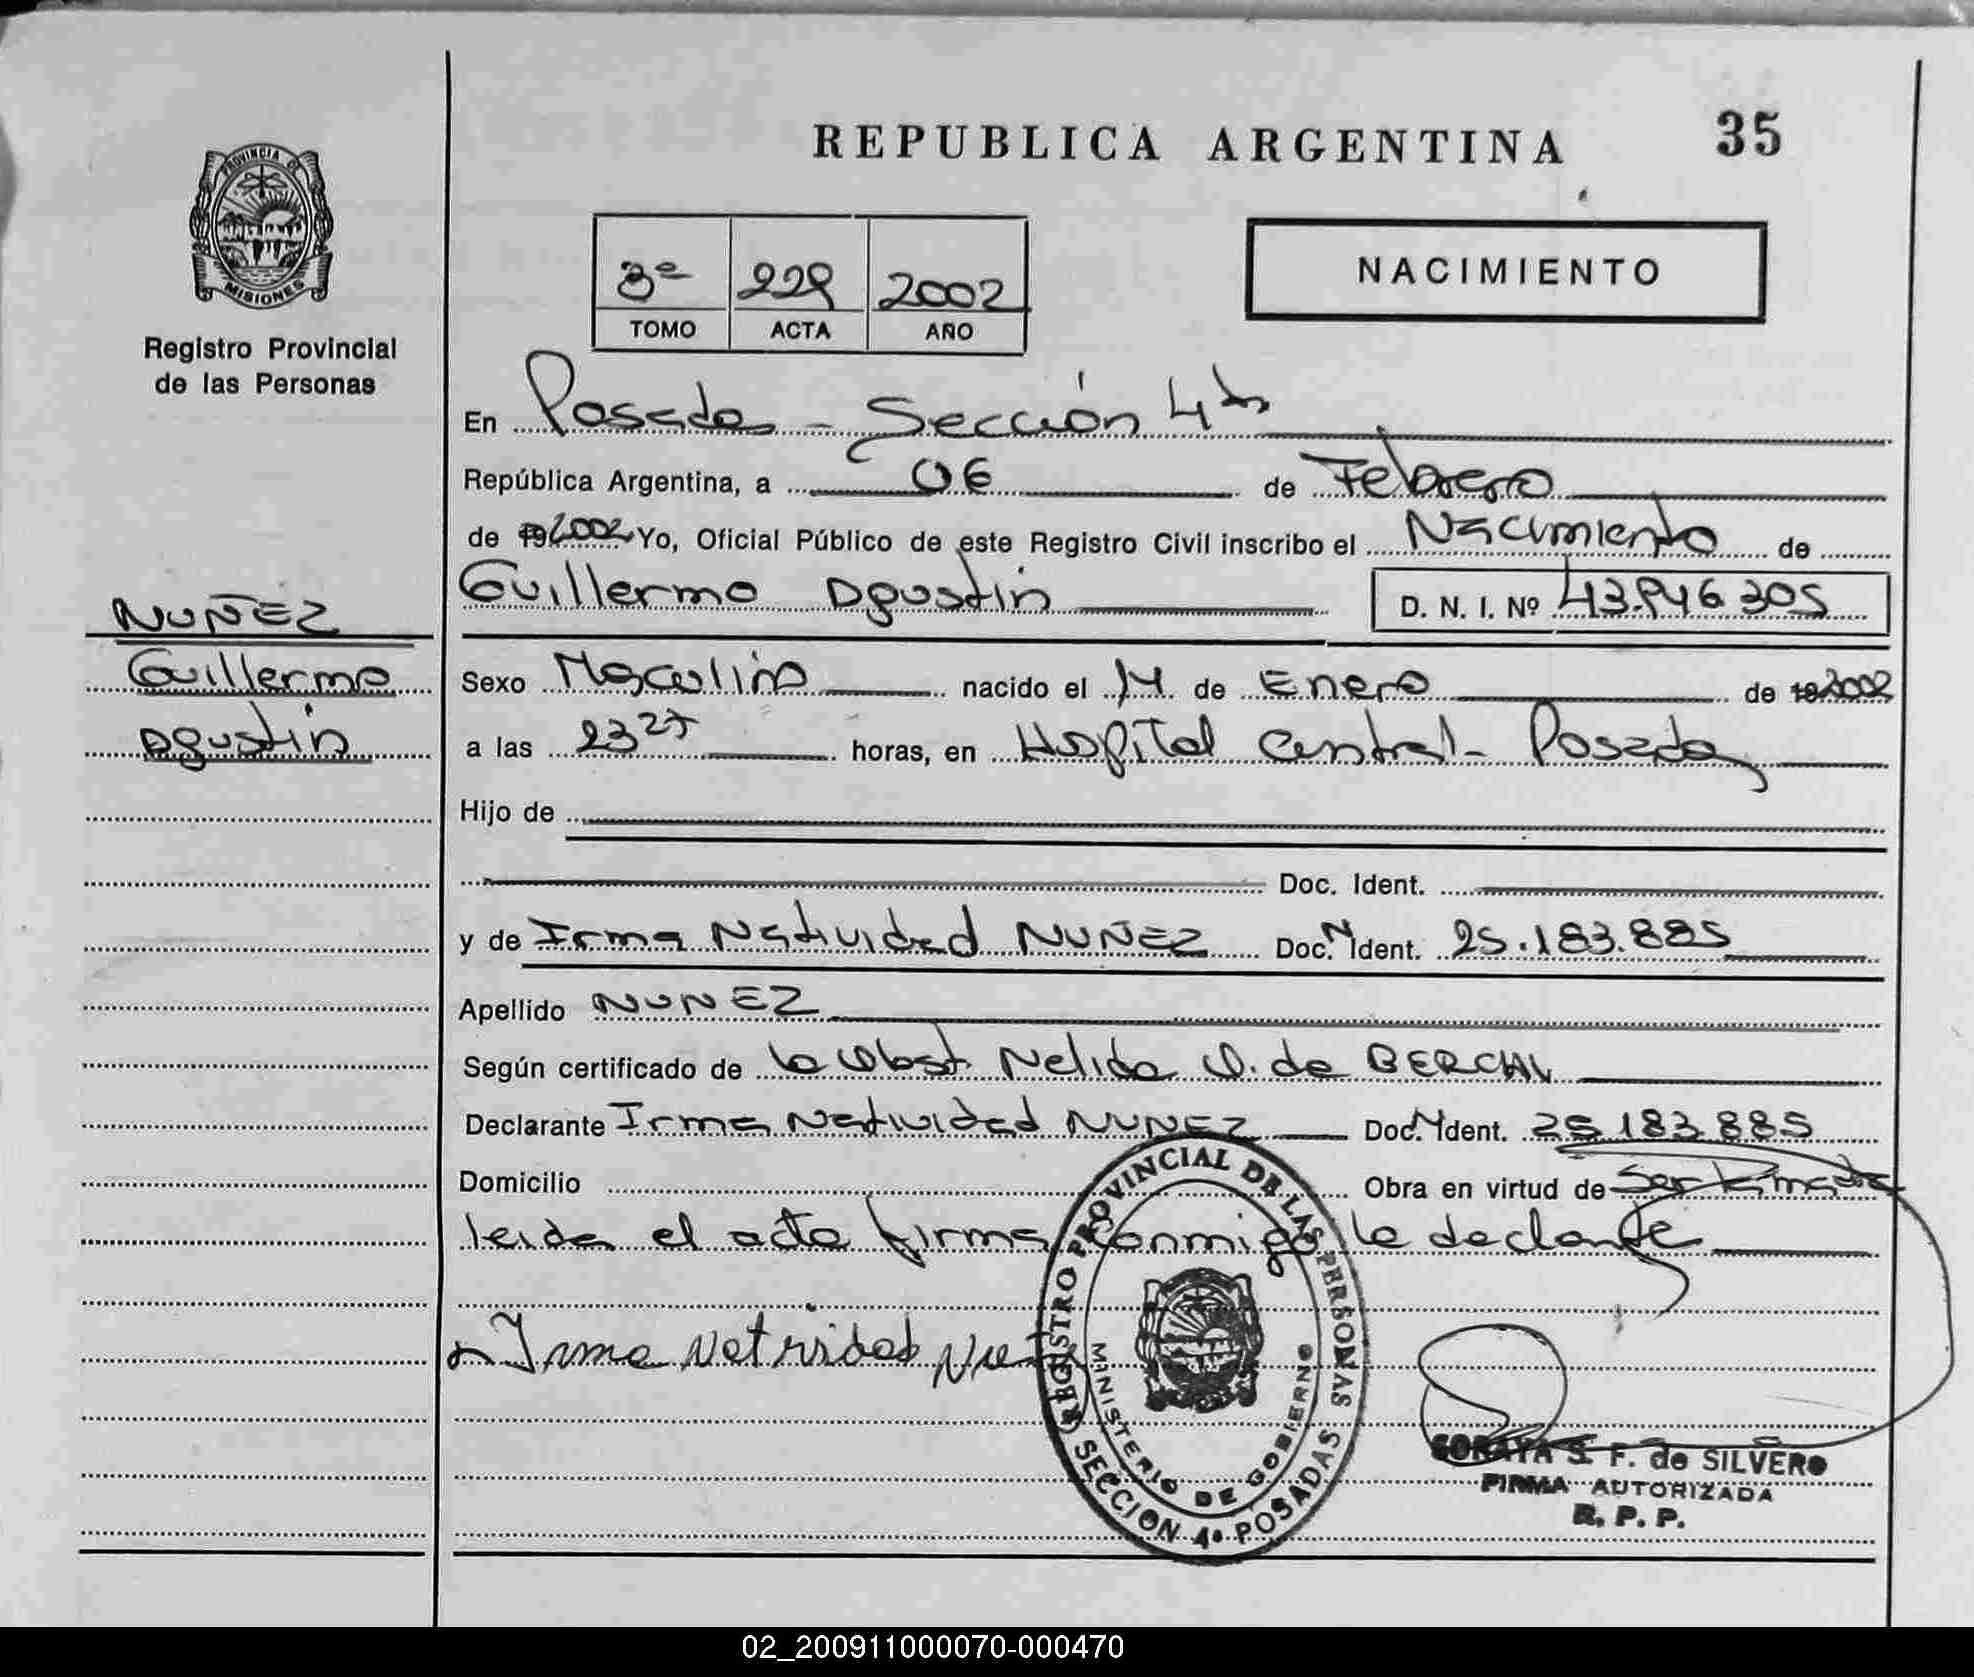 REPUBLICA ARGENTINA
35
PROVINCIA DE
MISIONES
Registro Provincial
de las Personas
3º 229 2002
TOMO ACTA AÑO
NACIMIENTO
En Posadas - Sección 4ta
República Argentina, a 06 de Febrero
de 19 2002 Yo, Oficial Público de este Registro Civil inscribo el Nacimiento de
Guillermo Agustin D. N. I. Nº 43.946.305
NUÑEZ
Guillermo
Agustin
Sexo Masculino nacido el 14 de Enero de 19 2002
a las 23 27 horas, en Hospital Central - Posadas
Hijo de
Doc. Ident.
y de Irma Natividad NUÑEZ Doc. N Ident. 25.183.885
Apellido NUÑEZ
Según certificado de la Obst. Nelida O. de
Declarante Irma Natividad NUÑEZ Doc. N Ident. 25.183.885
Domicilio Obra en virtud de Ser la madre
leida el acta firma conmigo la declarante
Irma Natividad
REGISTRO PROVINCIAL DE LAS PERSONAS
MINISTERIO DE GOBIERNO
SECCION 4ª POSADAS
SORAYA S. F. de SILVERO
FIRMA AUTORIZADA
R. P. P.
02_200911000070-000470